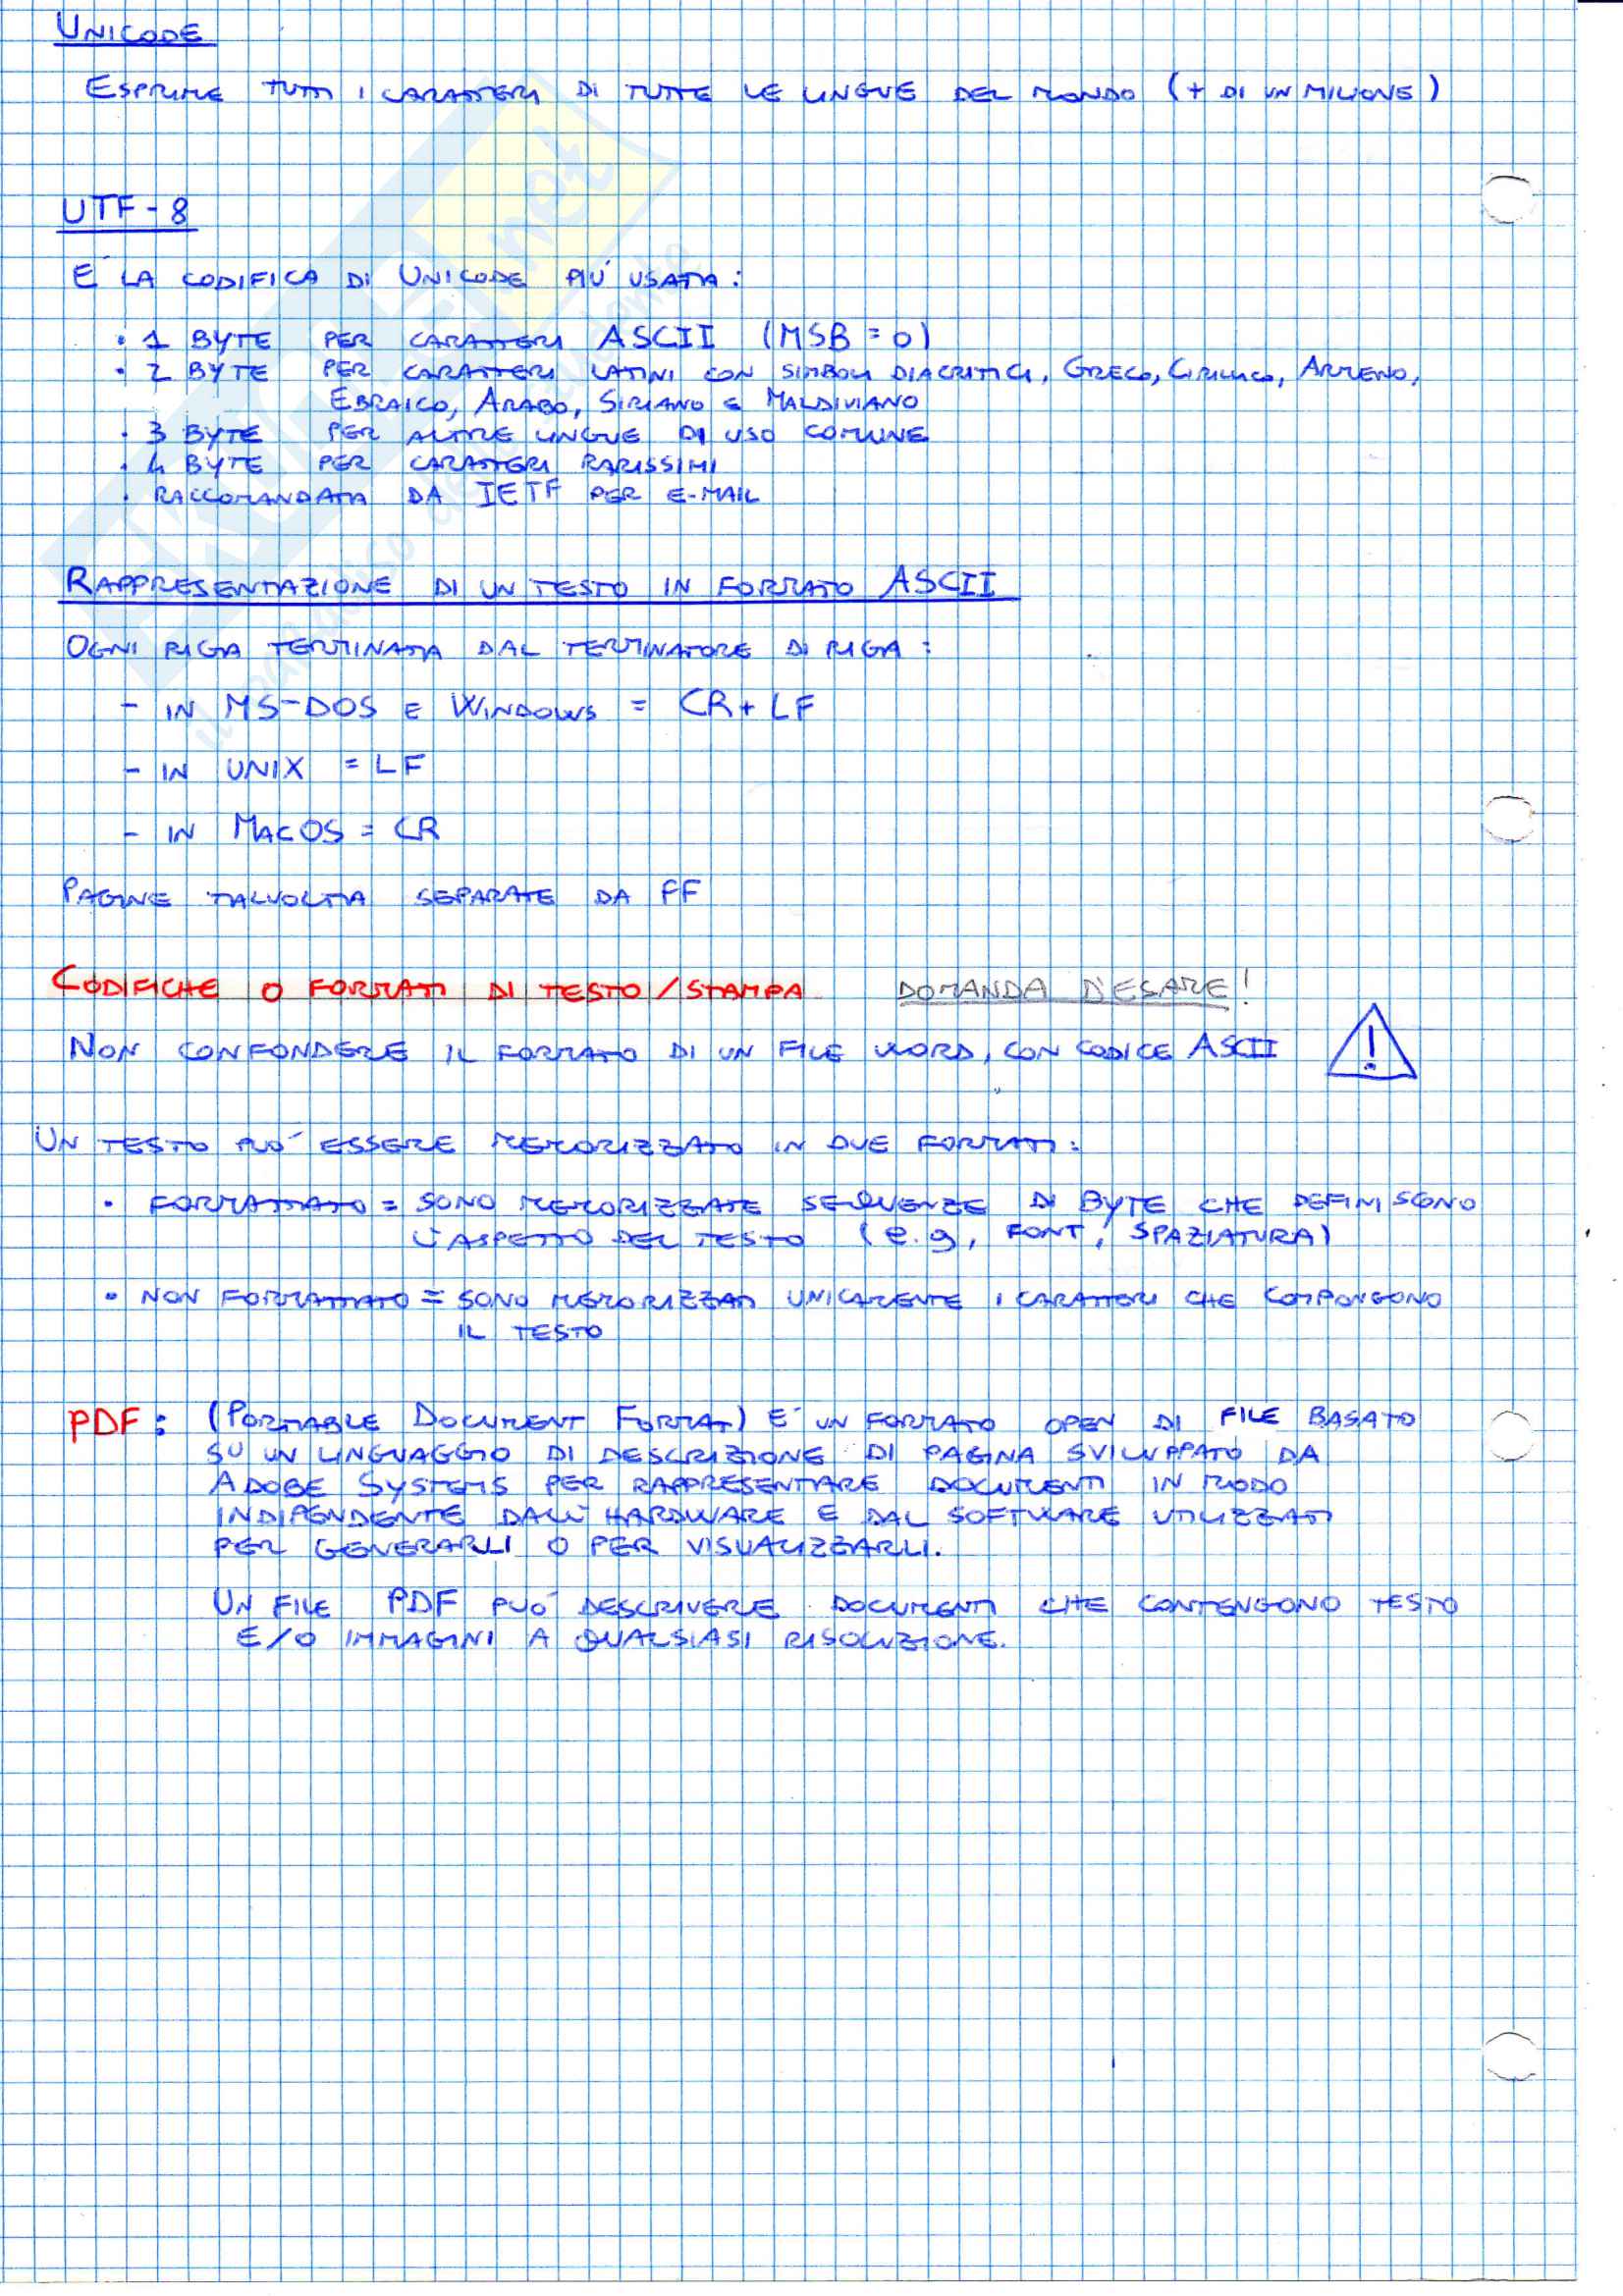 UNICODE
ESPRIME TUTTI I CARATTERI DI TUTTE LE LINGUE DEL MONDO (+ DI UN MILIONE)
UTF-8
E' LA CODIFICA DI UNICODE PIU' USATA:
• 1 BYTE PER CARATTERI ASCII (MSB = 0)
• 2 BYTE PER CARATTERI LATINI CON SIMBOLI DIACRITICI, GRECO, CIRILLICO, ARMENO,
EBRAICO, ARABO, SIRIANO E MALDIVIANO
• 3 BYTE PER ALTRE LINGUE DI USO COMUNE
• 4 BYTE PER CARATTERI RARISSIMI
• RACCOMANDATA DA IETF PER E-MAIL
RAPPRESENTAZIONE DI UN TESTO IN FORMATO ASCII
OGNI RIGA TERMINATA DAL TERMINATORE DI RIGA:
- IN MS-DOS E WINDOWS = CR+LF
- IN UNIX = LF
- IN MACOS = CR
PAGINE TALVOLTA SEPARATE DA FF
CODIFICHE O FORMATI DI TESTO/STAMPA DOMANDA D'ESAME!
NON CONFONDERE IL FORMATO DI UN FILE WORD, CON CODICE ASCII !
UN TESTO PUO' ESSERE MEMORIZZATO IN DUE FORMATI:
• FORMATTATO = SONO MEMORIZZATE SEQUENZE DI BYTE CHE DEFINISCONO
L'ASPETTO DEL TESTO (e.g, FONT, SPAZIATURA)
• NON FORMATTATO = SONO MEMORIZZATI UNICAMENTE I CARATTERI CHE COMPONGONO
IL TESTO
PDF: (PORTABLE DOCUMENT FORMAT) E' UN FORMATO OPEN DI FILE BASATO
SU UN LINGUAGGIO DI DESCRIZIONE DI PAGINA SVILUPPATO DA
ADOBE SYSTEMS PER RAPPRESENTARE DOCUMENTI IN MODO
INDIPENDENTE DALL'HARDWARE E DAL SOFTWARE UTILIZZATI
PER GENERARLI O PER VISUALIZZARLI.
UN FILE PDF PUO' DESCRIVERE DOCUMENTI CHE CONTENGONO TESTO
E/O IMMAGINI A QUALSIASI RISOLUZIONE.